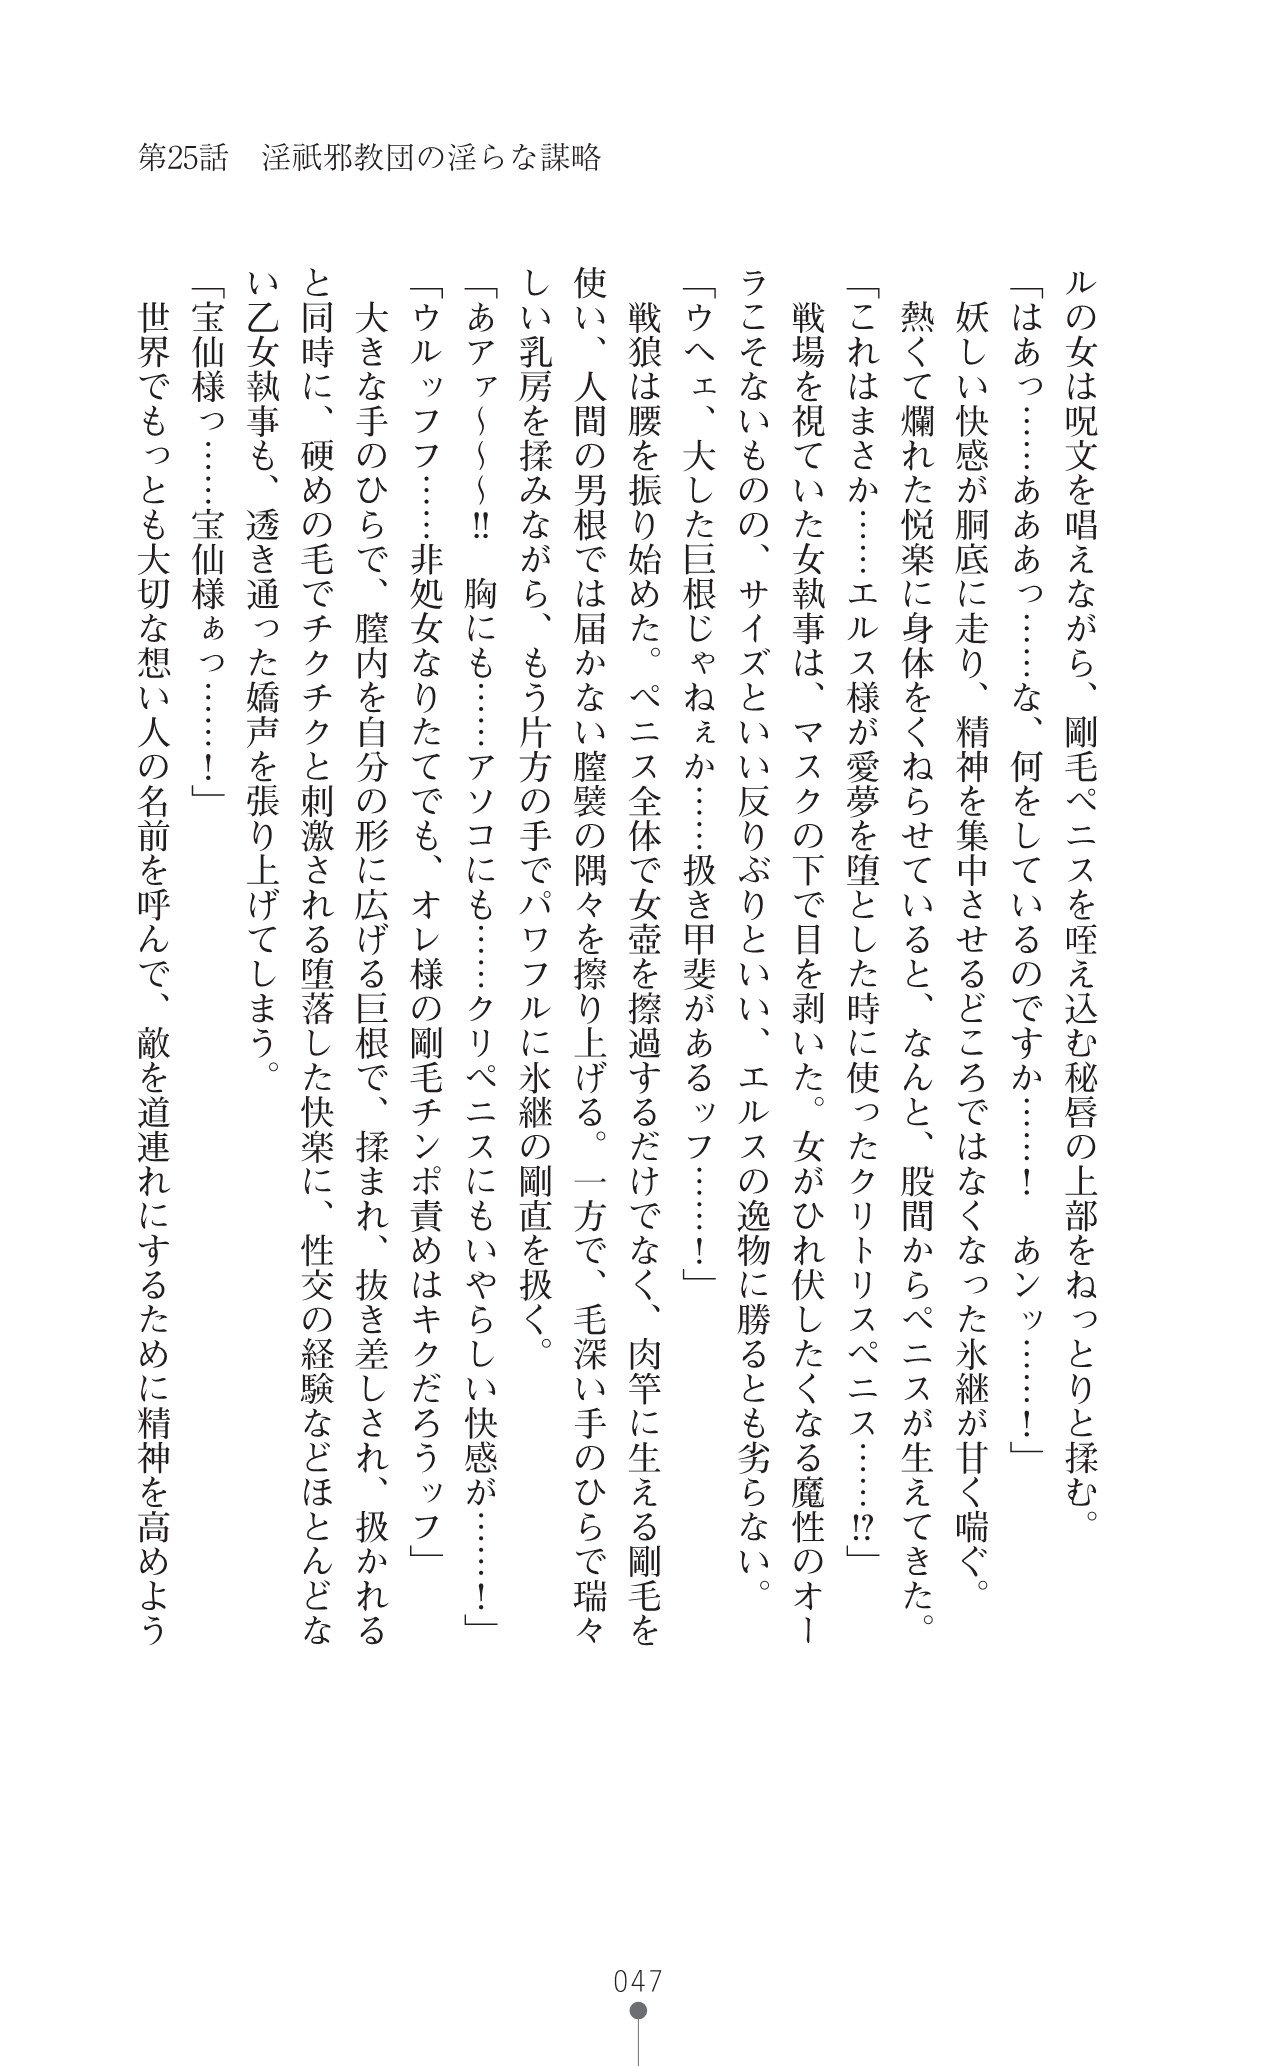 第25話　淫祇邪教団の淫らな謀略
ルの女は呪文を唱えながら、剛毛ペニスを咥え込む秘唇の上部をねっとりと揉む。
「はあっ……あああっ……な、何をしているのですか……！　あンッ……！」
　妖しい快感が胴底に走り、精神を集中させるどころではなくなった氷継が甘く喘ぐ。
　熱くて爛れた悦楽に身体をくねらせていると、なんと、股間からペニスが生えてきた。
「これはまさか……エルス様が愛夢を堕とした時に使ったクリトリスペニス……⁉」
　戦場を視ていた女執事は、マスクの下で目を剥いた。女がひれ伏したくなる魔性のオー
ラこそないものの、サイズといい反りぶりといい、エルスの逸物に勝るとも劣らない。
「ウヘェ、大した巨根じゃねぇか……扱き甲斐があるッフ……！」
　戦狼は腰を振り始めた。ペニス全体で女壺を擦過するだけでなく、肉竿に生える剛毛を
使い、人間の男根では届かない膣襞の隅々を擦り上げる。一方で、毛深い手のひらで瑞々
しい乳房を揉みながら、もう片方の手でパワフルに氷継の剛直を扱く。
「あアァ～～～‼　胸にも……アソコにも……クリペニスにもいやらしい快感が……！」
「ウルッフフ……非処女なりたてでも、オレ様の剛毛チンポ責めはキクだろうッフ」
　大きな手のひらで、膣内を自分の形に広げる巨根で、揉まれ、抜き差しされ、扱かれる
と同時に、硬めの毛でチクチクと刺激される堕落した快楽に、性交の経験などほとんどな
い乙女執事も、透き通った嬌声を張り上げてしまう。
「宝仙様っ……宝仙様ぁっ……！」
　世界でもっとも大切な想い人の名前を呼んで、敵を道連れにするために精神を高めよう
047